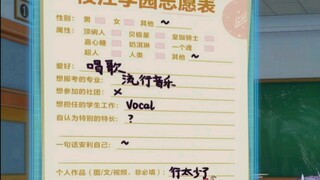 枝江学园志愿表
性别： 男 女 其他 ~
属性： 顶碗人 贝极星 皇珈骑士
嘉心糖 奶淇琳 一个魂
超人 人类 其他 ~
爱好： 唱歌
想报考的专业： 流行音乐
想参加的社团： ×
想担任的学生工作： Vocal
自认为特别的特长： ?
一句话安利自己： ~
个人作品（图/文/视频，非必填） 行太少了